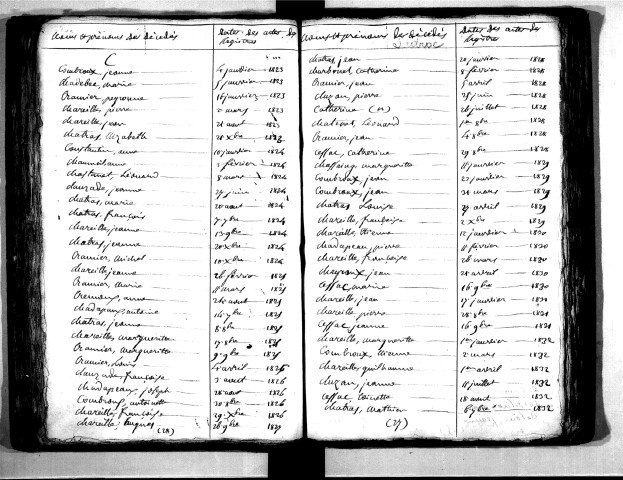 Noms et prénoms des décédés Dates des actes des Registres
C
Combroux, jeanne 4 janvier 1823
Chadebec, marie janvier 1823
Cramier, peyronne 16 janvier 1823
Chareille, pierre mars 1823
Chareille, jean 28 aout 1823
Chatras, Elizabeth 28 Xbre 1823
Constantin, anne 10 janvier 1824
février 1824
Chastanet, Léonard 8 mars 1824
Chuzade, jeanne 27 juin 1824
Chatras, marie 20 aout 1824
Chatras, françois 7 7bre 1824
Chareille, jeanne 13 9bre 1824
Chatras, jeanne 20 Xbre 1824
Cramier, Michel Xbre 1824
Chareille, jeanne 26 février 1825
Cramier, marie 11 mars 1825
anne aout 1825
Chadapaux, antoine 14 7bre 1825
Chatras, jeanne 8 8bre 1825
Chareille, marguerite 17 8bre 1825
Cramier, marguerite 9 9bre 1825
Cramier, Louis 4 avril 1826
françoise 3 aout 1826
Chadapeaux, joseph 28 aout 1826
Combroux, antoinette 20 8bre 1826
Chareille, françoise 29 Xbre 1826
Chareille, 26 9bre 1827
(28)
Noms et prénoms des décédés Dates des actes des Registres
Chatras, jean 20 janvier 1828
Charbonel, Catherine 8 février 1828
Cramier, jean avril 1828
Chuzan, pierre 25 juin 1828
Catherine (n) 26 juillet 1828
Léonard 1er 8bre 1828
Cramier, jean 4 8bre 1828
Ceffac, catherine 29 8bre 1828
Chassaing, marguerite 11 janvier 1829
Combroux, jean 27 janvier 1829
Combroux, jean 20 mars 1829
Chatras Louise 29 avril 1829
Chareille, françoise 2 Xbre 1829
Chareille, étienne 12 janvier 1830
Chadapeau, pierre 11 février 1830
Chareille, françoise 26 mars 1830
Chayroux, jean 28 avril 1830
Ceffac, marine 16 9bre 1830
Chareille, jean 17 janvier 1831
Chareille, pierre 28 8bre 1831
Ceffac, jeanne 16 9bre 1831
Chareille, marguerite 1er janvier 1832
Combroux, étienne 2 mars 1832
Chareille, guilhaume 1er avril 1832
Chuzan, jeanne 11 juillet 1832
Ceffac, 18 aout 1832
Chatras, mathieu 1832
(27)